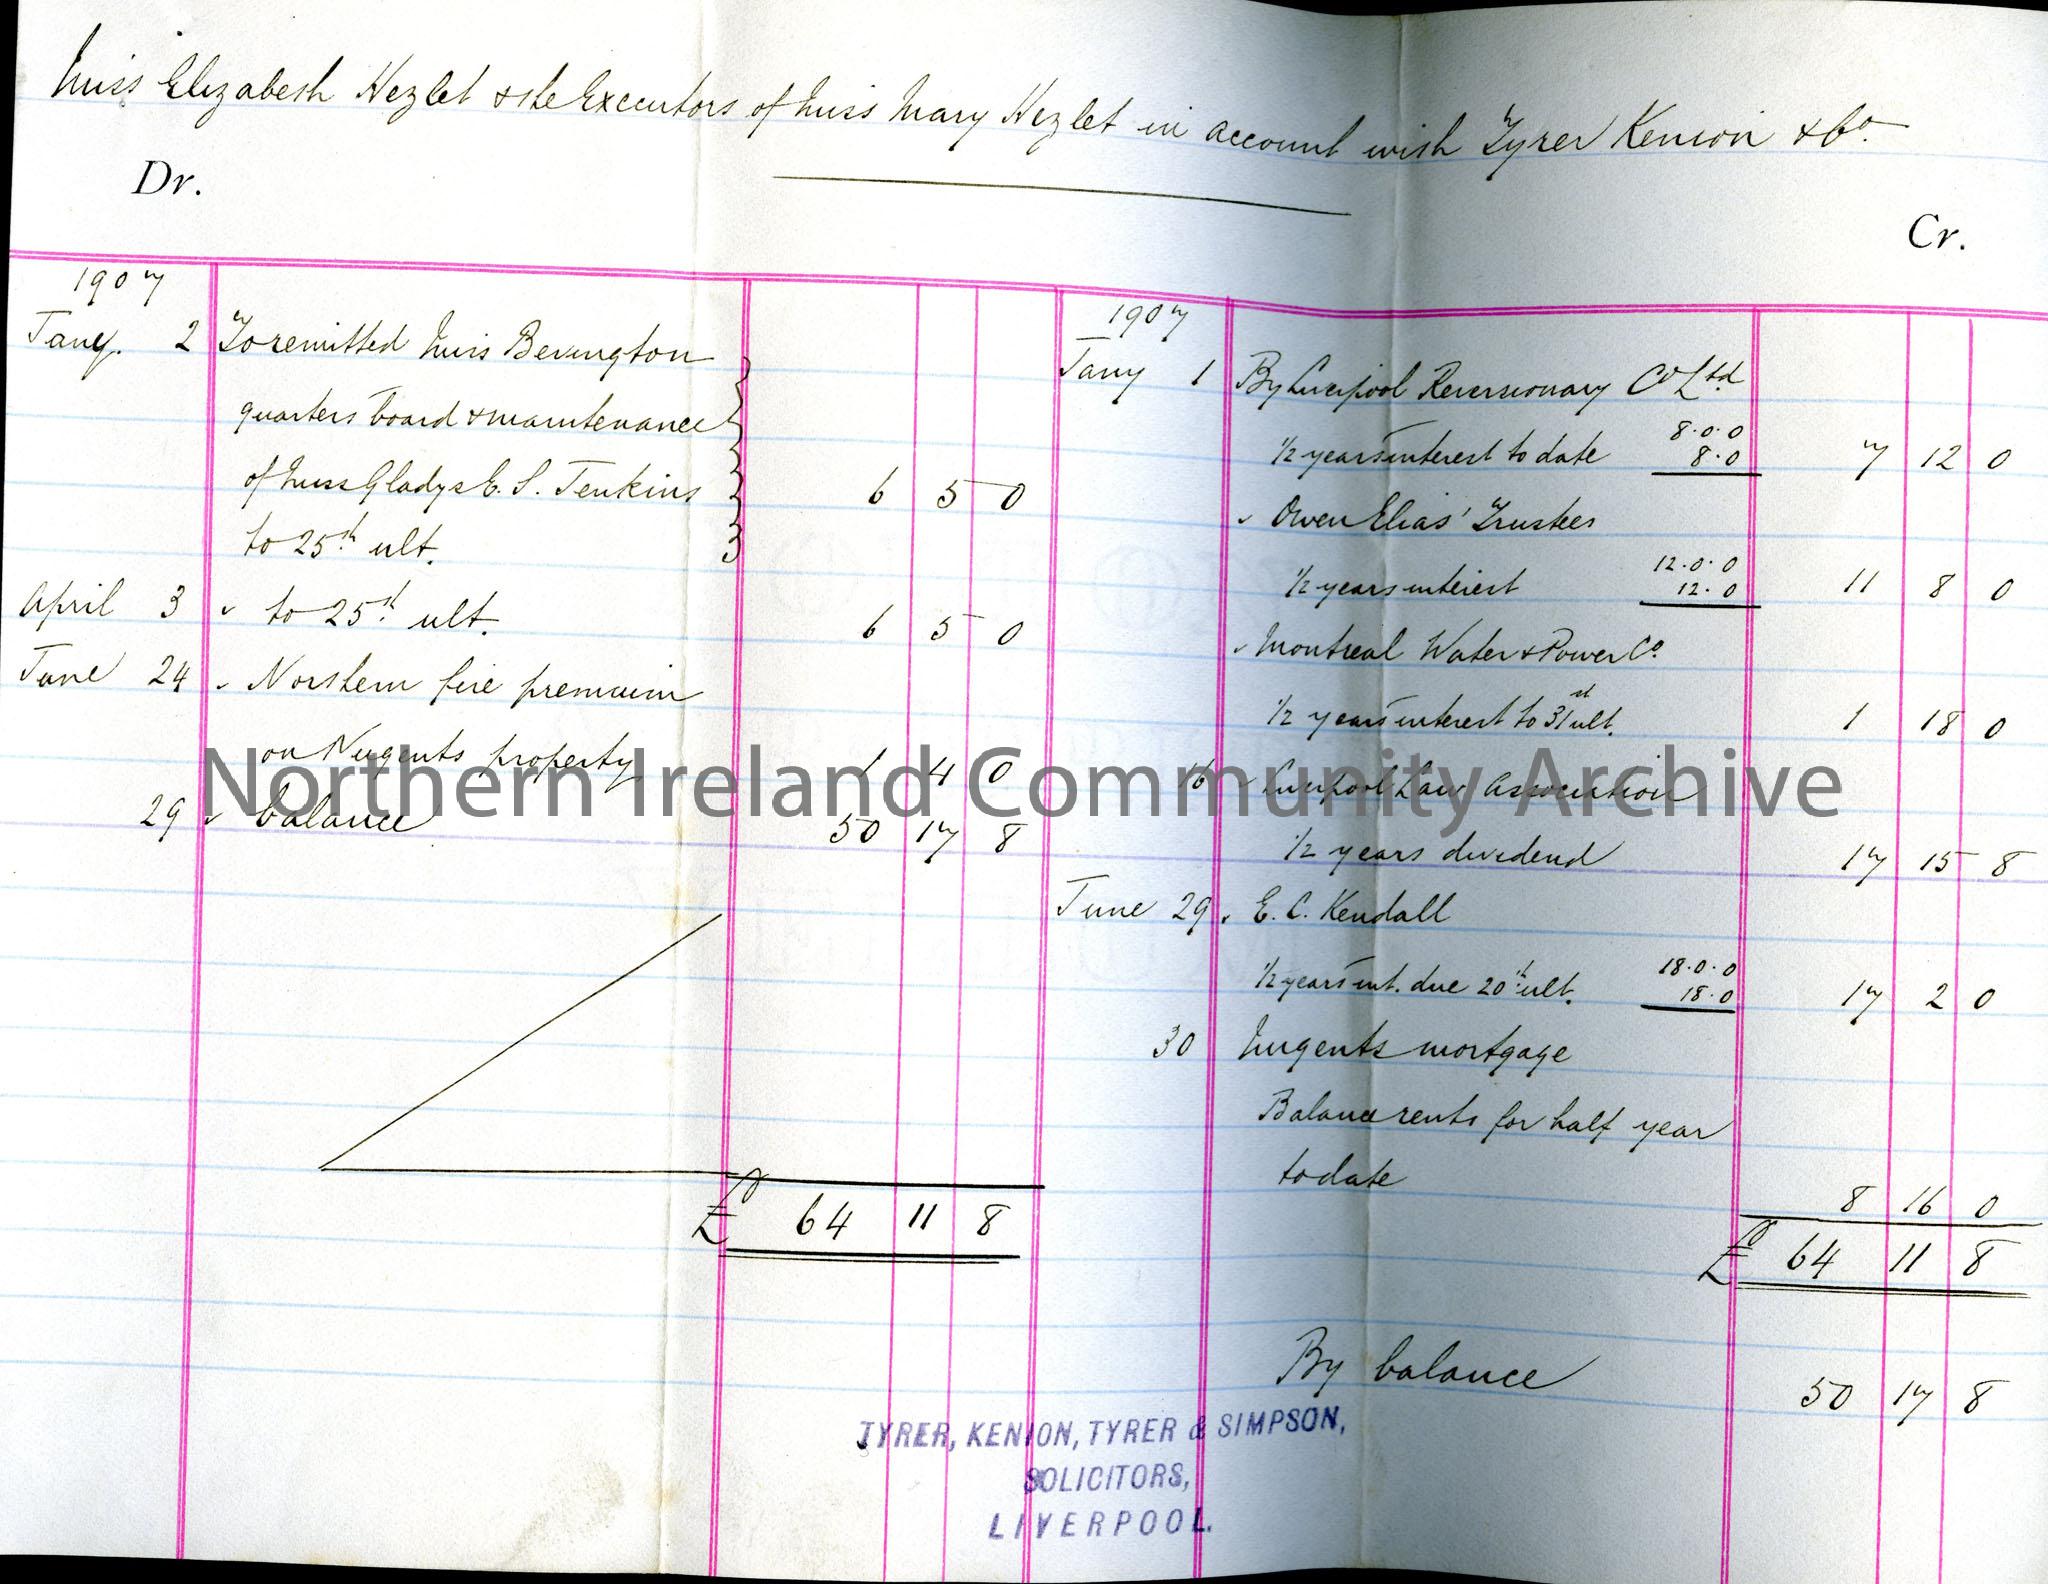 Miss Elizabeth Hezlet & the Executors of Miss Mary Hezlet in account with Tyrer Kenion & Co.
Dr.
Cr.
1907
Jany. 2 To remitted Miss Bevington
quarters board & maintenance
of Miss Gladys E. S. Jenkins 6 5 0
to 25th ult.
April 3 " to 25th ult. 6 5 0
June 24 " Northern fire premium
on Nugents property 1 4 0
29 " balance 50 17 8
£ 64 11 8
1907
Jany 1 By Liverpool Reversionary Co Ltd
8.0.0
1/2 years interest to date 8.0 7 12 0
" Owen Elias' Trustees
12.0.0
1/2 years interest 12.0 11 8 0
" Montreal Water & Power Co.
1/2 years interest to 31st ult. 1 18 0
16 " Liverpool Law Association
1/2 years dividend 17 15 8
June 29 " E. C. Kendall
18.0.0
1/2 years int. due 20th ult. 18.0 17 2 0
30 Nugents mortgage
Balance rents for half year
to date 8 16 0
£ 64 11 8
By balance 50 17 8
TYRER, KENION, TYRER & SIMPSON,
SOLICITORS,
LIVERPOOL.
Northern Ireland Community Archive